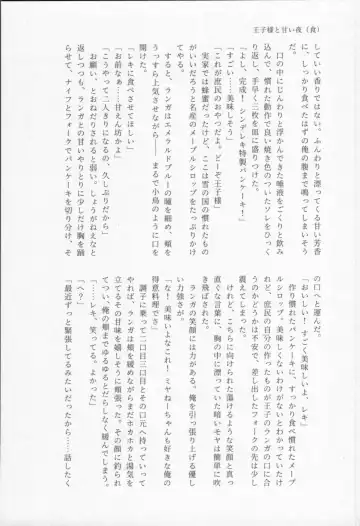 王子様と甘い夜（食）
してい香りがする。ふんわりと漂ってくる甘い芳香
に、しっかり食べたはずの俺の腹まで鳴ってしまいそう
だ。
口の中にじんわりと浮かんできた唾液をごくりと飲み
込んで、慣れた動作で良い焼き色のついたソレをひっく
り返し、手早く三枚を皿に盛りつけた。
「よし、完成！ シンデレキ特製パンケーキ！」
「すごい……美味しそう」
「これが庶民のおやつだよ。どーぞ王子様」
実家では蜂蜜だったけど、ここは雪の国の慣れたもの
がいいだろうと名産のメープルシロップをたっぷりと。
すると、ランガはエメラルドブルーの瞳を細め、頬を
うっすら上気させながら――まるで小鳥のように口を
開けた。
「レキに食べさせてほしい」
「お前なぁ……甘えん坊かよ」
「こうやって二人きりになるの、久しぶりだから」
お願い、とおねだりされると弱い。しょうがねえなと
言いつつも、ランガとの甘いひとときに少しだけ胸を踊
らせて、ナイフとフォークでパンケーキを切り分け、そ
の口へと運んだ。
「おいしい！ すごく美味しいよ、レキ」
作り慣れたパンケーキに、すっかり食べ慣れたメープ
ルシロップ。美味しくないわけがないとわかっていたけ
れど、庶民の自分の作ったものが王子のランガの口に合
うのかどうかは不安で、差し出したフォークの先は少し
震えてしまった。
けれど、こちらに向けられた蕩けるような笑顔と真っ
直ぐな言葉に、胸の中に漂っていた暗いモヤは簡単に吹
き飛ばされた。
ランガの笑顔には力がある。俺を引っ張り上げる優し
い力強さが。
「な！ 美味いよなこれ！ ミヤねーちゃんも好きな俺の
得意料理でさ」
調子に乗って二口目三口目とその口元へ持っていって
やれば、ランガは頬を緩めながらまだホカホカと湯気を
立てるその甘味を嬉しそうに頬張った。その顔に釣られ
ていい、俺の頬までゆるゆるとだらしなく緩んでしまう。
「……レキ、笑ってる。よかった」
「へ？」
「最近ずっと緊張してるみたいだったから……話したく